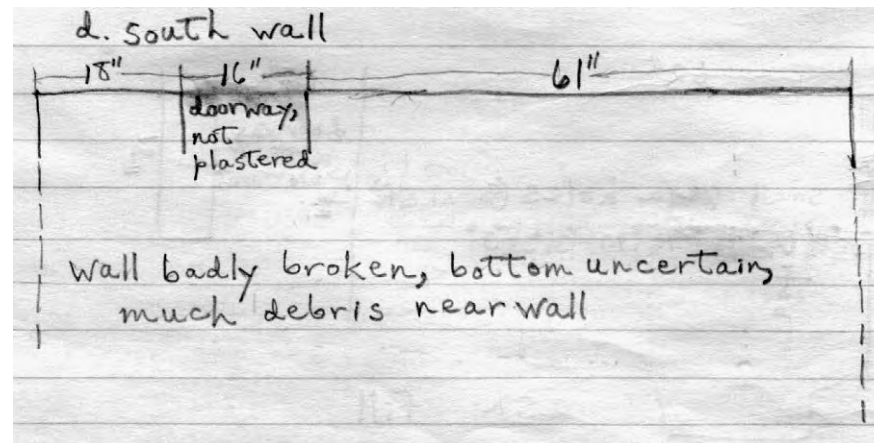 d. South wall
18" 16" 61"
doorway,
not
plastered
wall badly broken, bottom uncertain,
much debris near wall